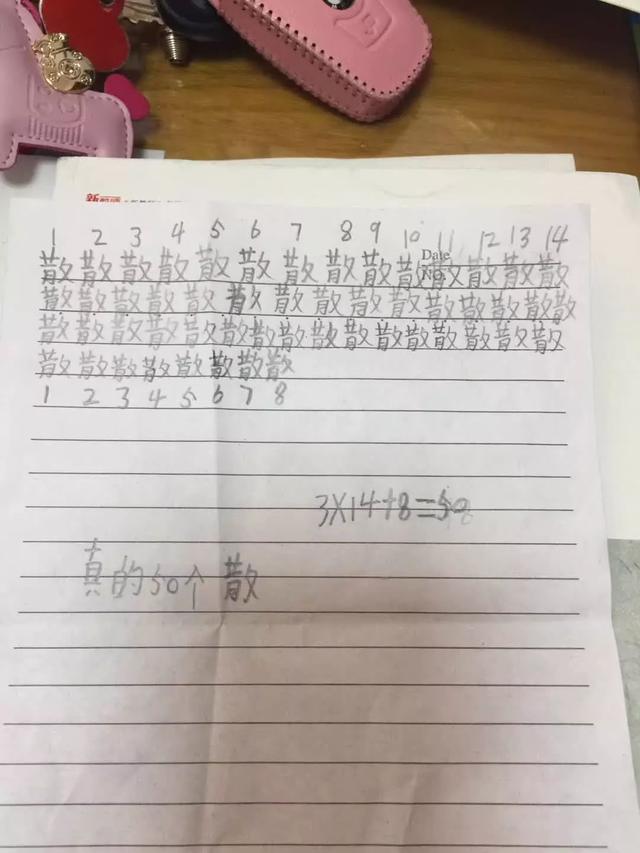 1 2 3 4 5 6 7 8 9 10 11 12 13 14
Date
No.
散散散散散散散散散散散散散散
散散散散散散散散散散散散散散散
散散散散散散散散散散散散散散散散
散散散散散散散散
1 2 3 4 5 6 7 8
3X14+8=50
真的50个散